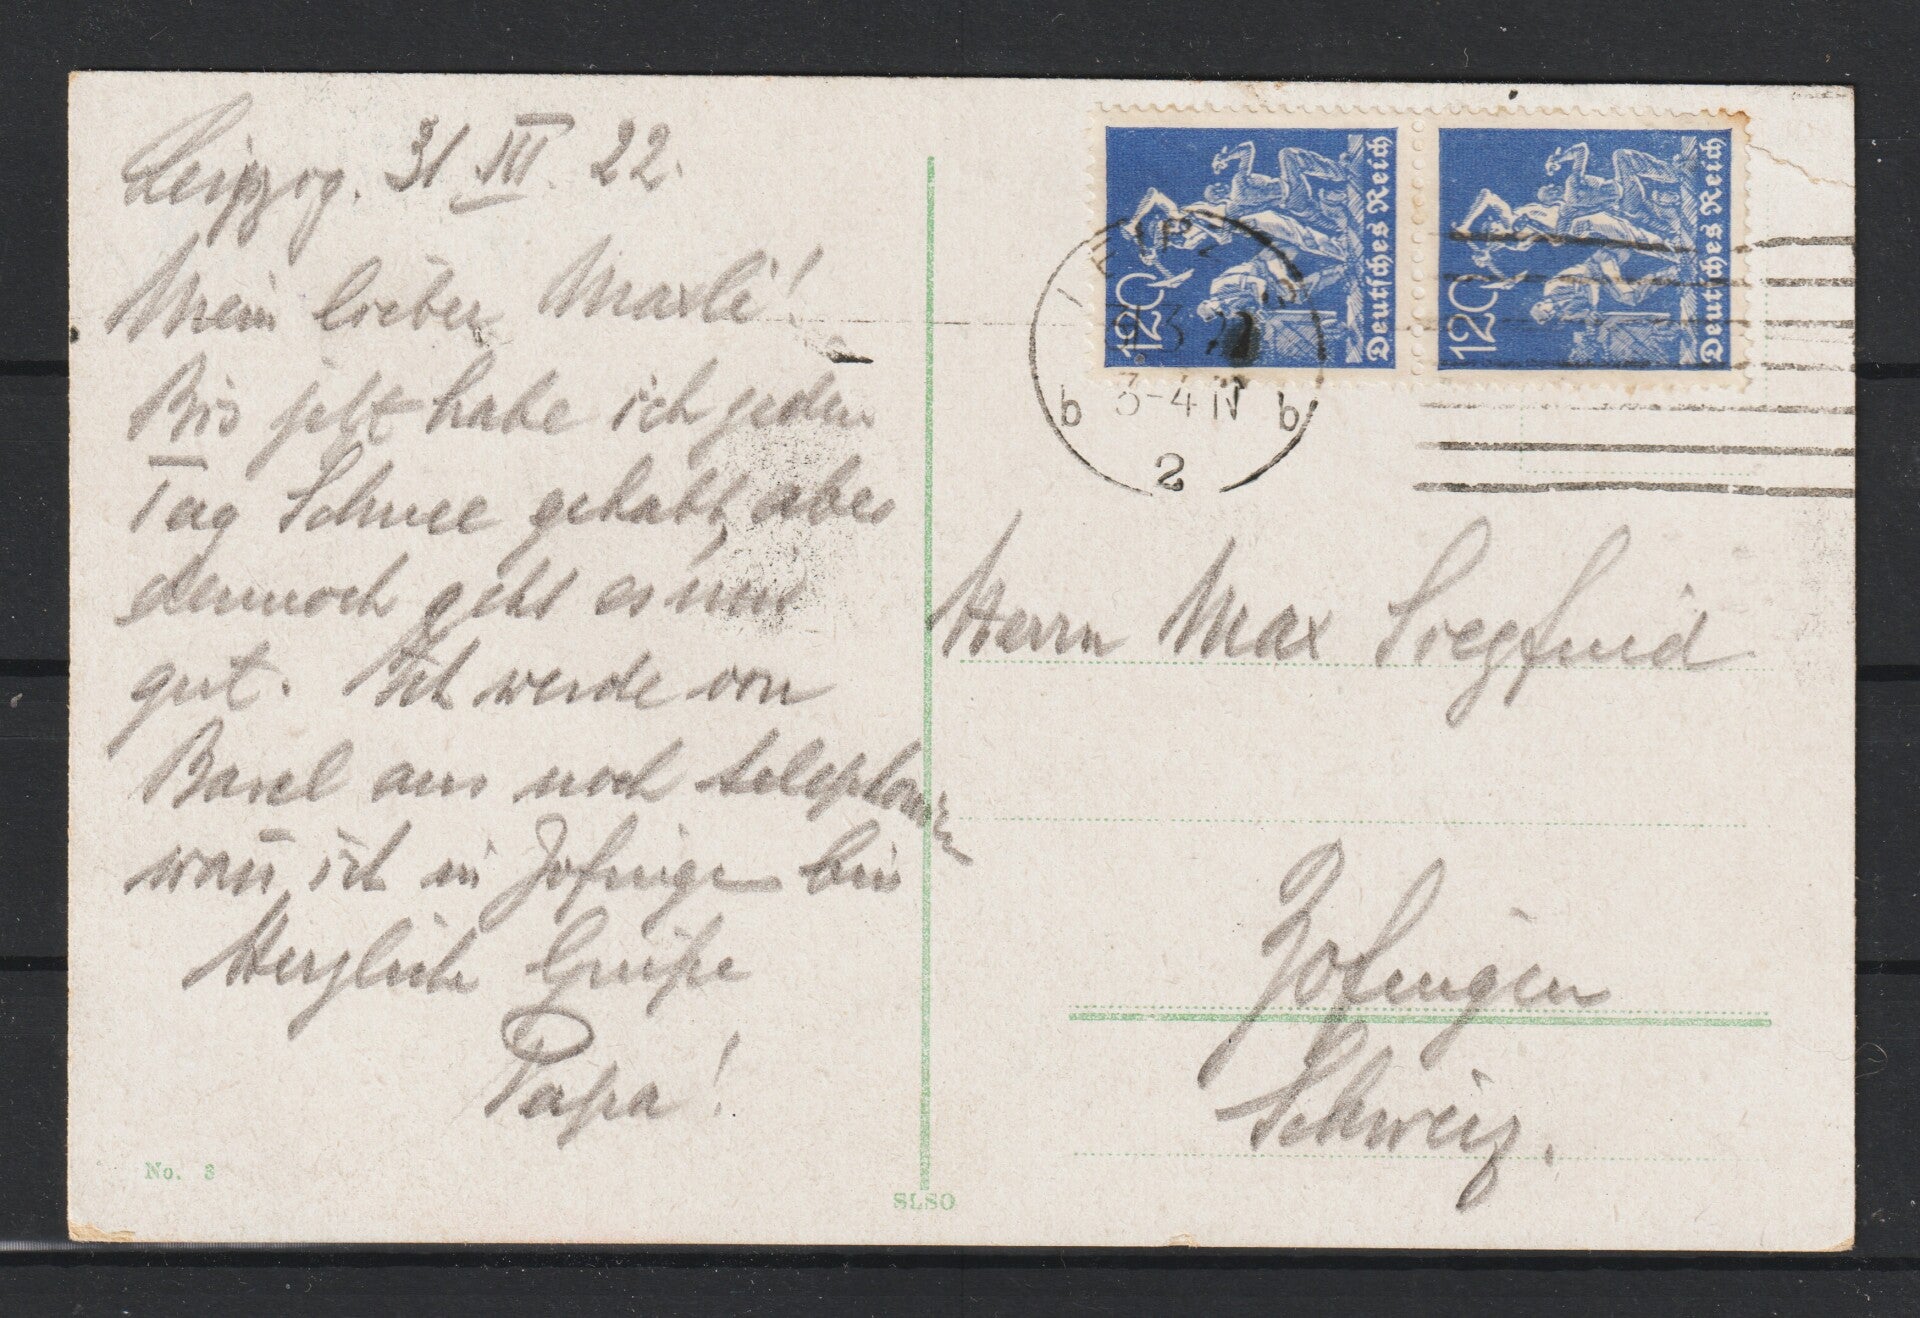 Leipzig. 31 III. 22.
Mein lieber Maxli!
Bis jetzt habe ich jeden
Tag Schnee gehabt, aber
dennoch geht es mir
gut. Ich werde von
Basel aus noch telephonieren
wan̄ ich in Zofingen bin
Herzliche Grüße
Papa!
No. 3
SLSO
120 Deutsches Reich
120 Deutsches Reich
LEIPZIG
3-4 N
b b
2
Herrn Max Siegfried
Zofingen
Schweiz.